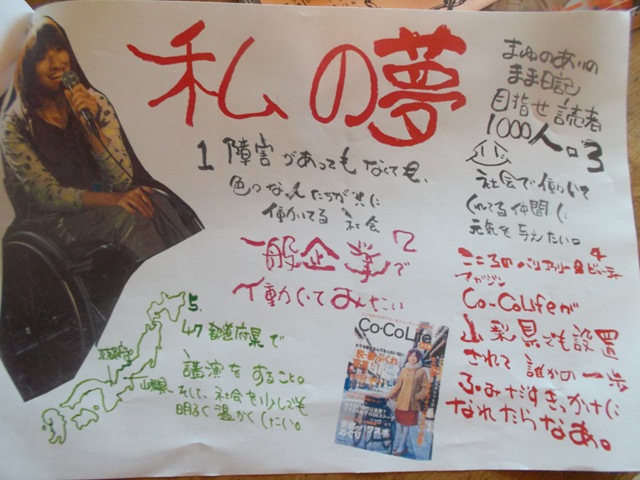 私の夢
まゆのあいの
まま日記
目指せ読者
1000人。
1 障害があってもなくても、
色々な人たちが共に
働いてる社会
2
一般企業で
働いてみたい
3
社会で働いて
くれてる仲間に
元気を与えたい。
4
こころのバリアフリー&ビューティ
マガジン
Co-CoLifeが
山梨県でも設置
されて誰かの一歩
ふみだすきっかけに
なれたらなあ。
5.
47都道府県で
講演をすること。
そして、社会を少しでも
明るく温かくしたい。
山梨県
Co-CoLife